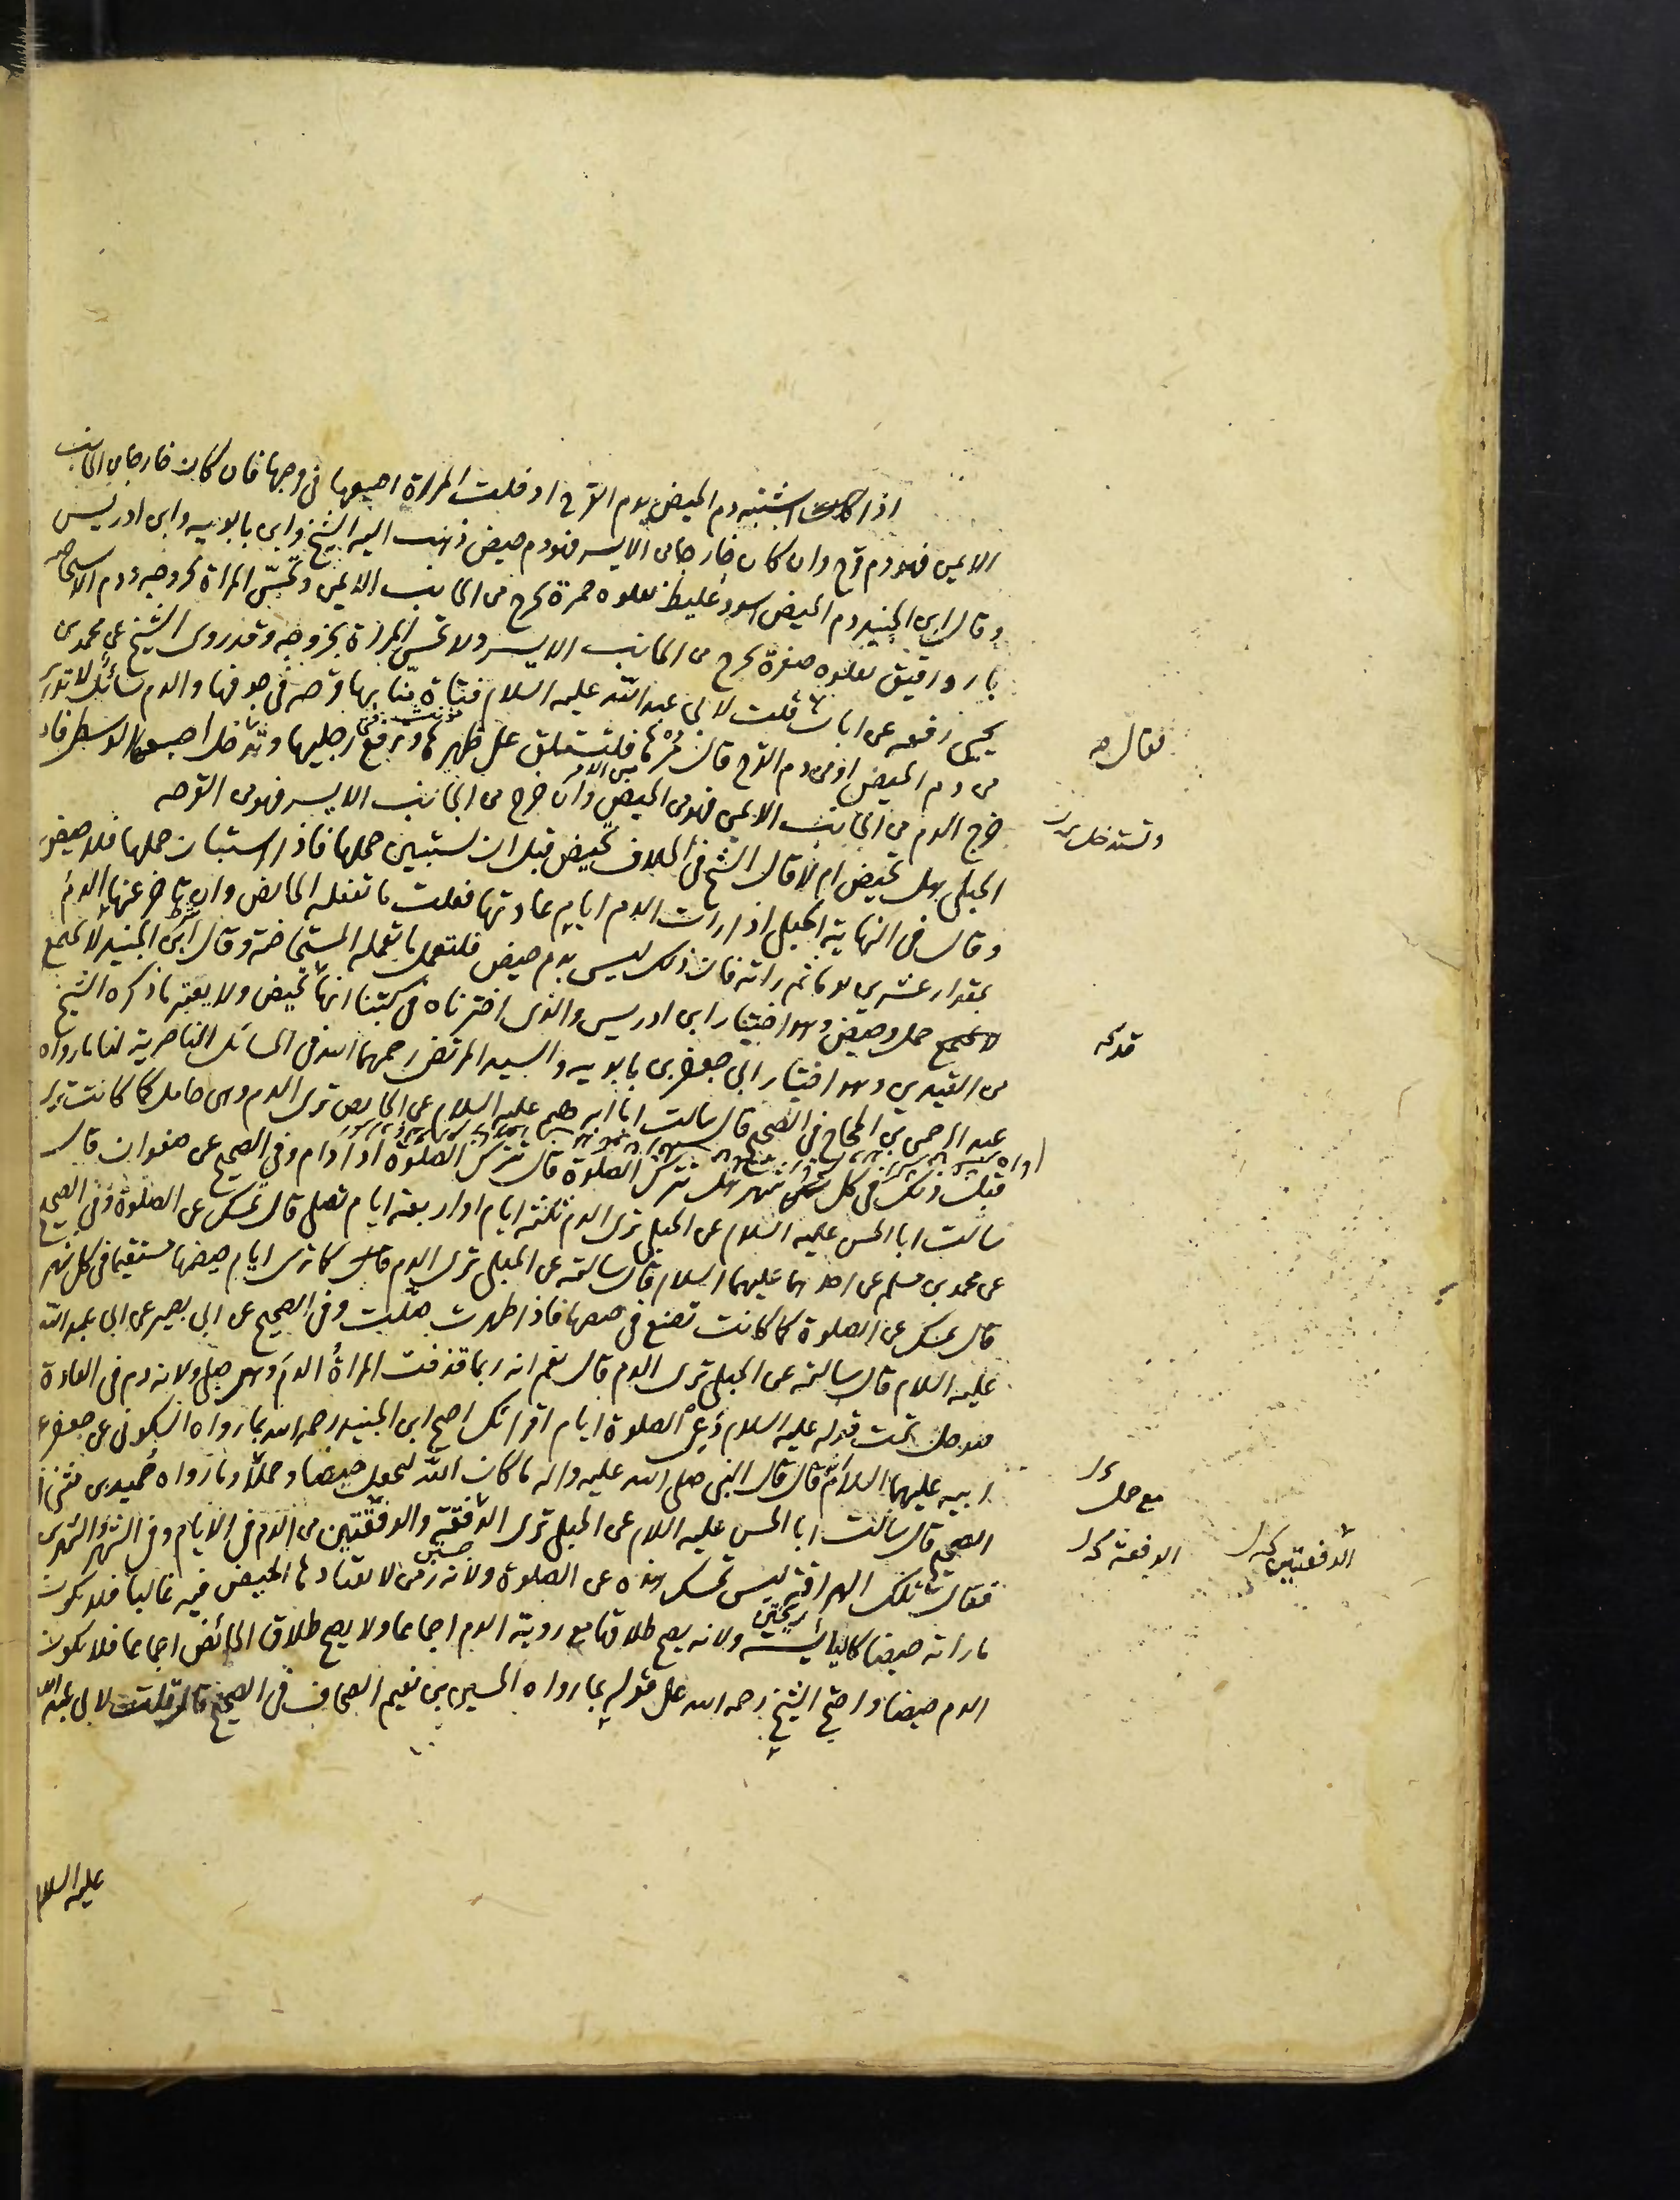 اذا اشتبه دم الحيض بدم القرح ادخلت المراة اصبعها فى فرجها فان كان خارجا من الجانب
الايمن فهو دم قرح وان كان خارجا من الايسر فهو دم حيض ذهب اليه الشيخ وابن بابويه وابن ادريس
وقال ابن الجنيد دم الحيض اسود غليظ تعلوه حمرة يخرج من الجانب الايمن وتحس المراة بخروجه ودم الاستحاضه
بارد رقيق تعلوه صفرة يخرج من الجانب الايسر ولا تحس المراة بخروجه وقد روى الشيخ عن محمد بن
يحيى رفعه عن ابان قلت لابى عبد الله عليه السلام فتاة منا بها قرحه فى جوفها والدم سائل لا تدرى
من دم الحيض او من دم القرح قال مرها فلتستلق على ظهرها وترفع رجليها وتدخل اصبعها الوسطى فان
خرج الدم من الجانب الايمن فهو من الحيض وان خرج من الجانب الايسر فهو من القرحه
الحبلى هل تحيض ام لا قال الشيخ فى الخلاف تحيض قبل ان تستبين حملها فاذا استبان حملها فلا حيض
وقال فى النهاية الحبلى اذا رات الدم ايام عادتها فعلت ما تفعله الحائض وان تاخر عنها الدم
بمقدار عشرين يوما ثم راته فان ذلك ليس بدم حيض فلتعمل ما تعمله المستحاضة وقال ابن الجنيد لا يجتمع
حمل وحيض وهو اختيار ابن ادريس والذى اخترناه فى كتبنا انها تحيض ولا يعتبر ما ذكره الشيخ
من القيدين وهو اختيار ابى جعفر بن بابويه والسيد المرتضى رحمهما الله فى المسائل الناصرية لنا ما رواه
عبد الرحمن بن الحجاج فى الصحيح قال سالت ابا ابراهيم عليه السلام عن الحبلى ترى الدم وهى حامل كما كانت ترى
قبل ذلك فى كل شهر هل تترك الصلوة قال تترك الصلوة اذا دام وفى الصحيح عن صفوان قال
سالت ابا الحسن عليه السلام عن الحبلى ترى الدم ثلثة ايام او اربعة ايام تصلى قال تمسك عن الصلوة وفى الصحيح
عن محمد بن مسلم عن احدهما عليهما السلام قال سالته عن الحبلى ترى الدم كما ترى ايام حيضها مستقيما فى كل شهر
قال تمسك عن الصلوة كما كانت تصنع فى حيضها فاذا طهرت صلت وفى الصحيح عن ابى بصير عن ابى عبد الله
عليه السلام قال سالته عن الحبلى ترى الدم قال نعم انه ربما قذفت المراة الدم وهى حبلى ولانه دم فى العادة
فدخل تحت قوله عليه السلام دعى الصلوة ايام اقرائك احتج ابن الجنيد رحمه الله بما رواه السكونى عن جعفر عن
ابيه عليهما السلام قال قال النبى صلى الله عليه واله ما كان الله ليجعل حيضا وحملا وما رواه حميد بن المثنى فى
الصحيح قال سالت ابا الحسن عليه السلام عن الحبلى ترى الدفقة والدفقتين من الدم فى الايام وفى الشهر والشهرين
فقال تلك الهراقة ليس تمسك هذه عن الصلوة ولانه زمن لا يعتاد فيه الحيض غالبا فلا يكون
ما راته حيضا كاليائسة ولانه يصح طلاقها مع روية الدم اجماعا ولا يصح طلاق الحائض اجماعا فلا يكون
الدم حيضا واحتج الشيخ رحمه الله على قوله بما رواه الحسين بن نعيم الصحاف فى الصحيح قال قلت لابى عبد الله
عليه السلام
فقال
وتستدخل
مع حمل
الدفعة
الدفعتين